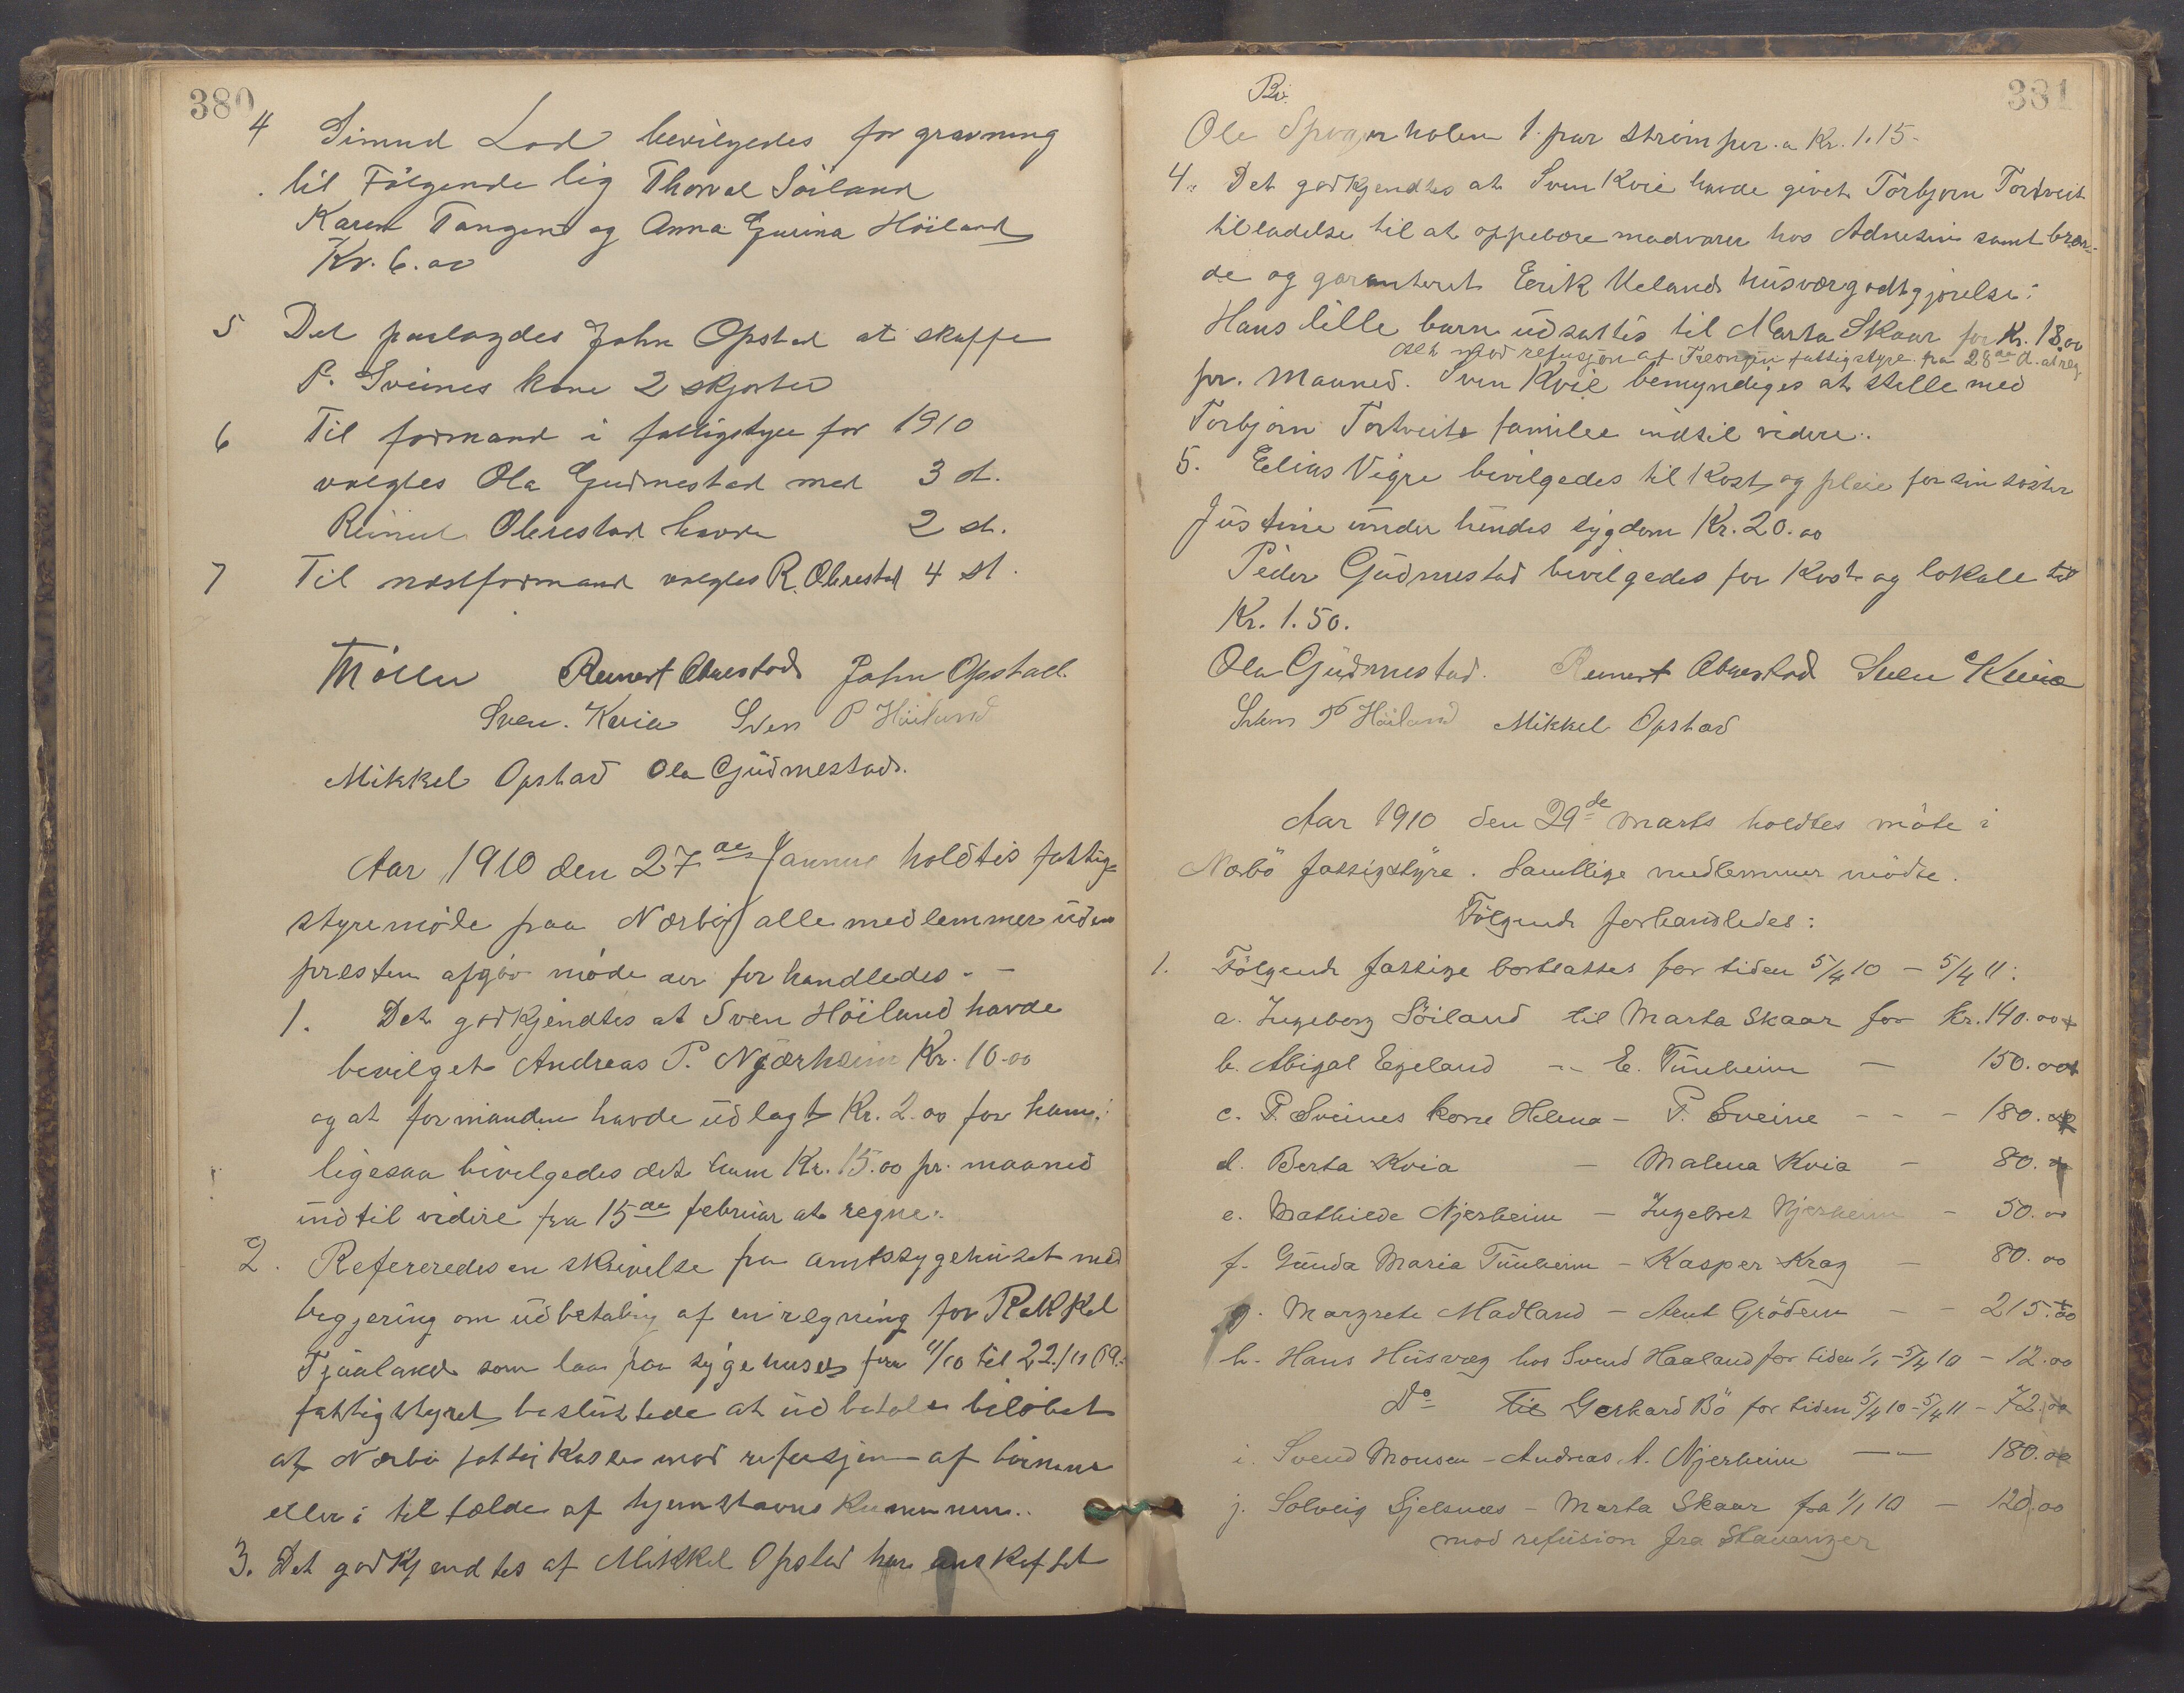 380
4 Simud Lod bevilgedes for gravning
til Fölgende lig Thorval Söiland
Karen Tangen og Anna Gurina Höiland
Kr. 6.00
5 Det paalagdes John Opstad at skaffe
P. Sveines kone 2 skjorter
6 Til formand i fattigstyre for 1910
valgtes Ola Gudmestad med 3 st.
Reinert Obrestad havde 2 st.
7 Til næstformand valgtes R. Obrestad 4 st.
Möller Reinert Obrestad John Opstad.
Sven. Kvia Sven P Höiland
Mikkel Opstad Ola Gudmestad.
Aar 1910 den 27de Januar holdtes fattig-
styremöde paa Nærbö alle medlemmer uden
presten afgav möde der forhandledes. -
1. Det godkjendtes at Sven Höiland havde
bevilget Andreas P. Njærheim Kr. 10.00
og at formanden havde udlagt Kr. 2.00 for ham.
ligesaa bevilgedes det ham Kr. 15.00 pr. maaned
indtil videre fra 15de februar at regne.
2. Refereredes en skrivelse fra amtssygehuset med
begjering om udbetaling af en regning for Rakkel
Tjaaland som laa paa sygehuset fra 11/10 til 22/11 09.
fattigstyret besluttede at udbetale belöbet
af Nærbö fattigkasse mod refusjon af börnene
eller i tilfælde af hjemstavns kummunen..
3. Det godkjendtes at Mikkel Opstad har anskaffet
331
Ole 1 par strömper a Kr. 1.15-
4. Det godkjendtes at Sven Kvie havde givet Torbjorn Tortveit
tilladelse til at oppebære madvarer hos Adnesin samt bræn-
de og garanteret Eerik Ueland husværgodtgjörelse:
Hans lille barn udsattes til Marta Skaar for Kr. 18.00
alt mod refusjon af fattigstyre fra 28de d. at reg.
pr. Maaned. Sven Kvie bemyndiges at stelle med
Torbjörn Tortveits familie indtil videre..
5. Eelias Vigre bevilgedes til Kost og pleie for sin söster
Justine under hendes sygdom Kr. 20.00
Peder Gudmestad bevilgedes for Kost og lokale til
Kr. 1.50.
Ola Gudmestad. Reinert Obrestad Sven Kvia
Sven P Höiland Mikkel Opstad
Aar 1910 den 29de marts holdtes möte i
Nærbö fattigstyre. Samtlige medlemmer mödte.
Fölgende forhandledes:
1. Fölgende fattige bortsattes for tiden 5/4 10 - 5/4 11:
a. Ingeborg Söiland til Marta Skaar for kr. 140.00
b. Abigal Egeland -- E. Tunheim - 150.00
c. P. Sveines kone Helena - P. Sveine - - - 180.00
d. Berta Kvia - Malena Kvia - 80.
e. Mathilde Njerheim - Ingebret Njerheim - 50.00
f. Gunda Maria Tunheim - Kasper Krag - 80.00
g. Margrete Madland - Arnt Grödem - - 215.00
h. Hans Husvæg hos Svend Haaland for tiden 1/1 - 5/4 10 - 12.00
Do til Gerhard Bö for tiden 5/4 10 - 5/4 11 - 72.00
i. Svend Monsen - Andreas A. Njerheim -- 180.00
j. Solveig Sjelsnæs - Marta Skaar fra 1/1 10 - 120.00
mod refusion fra Stavanger